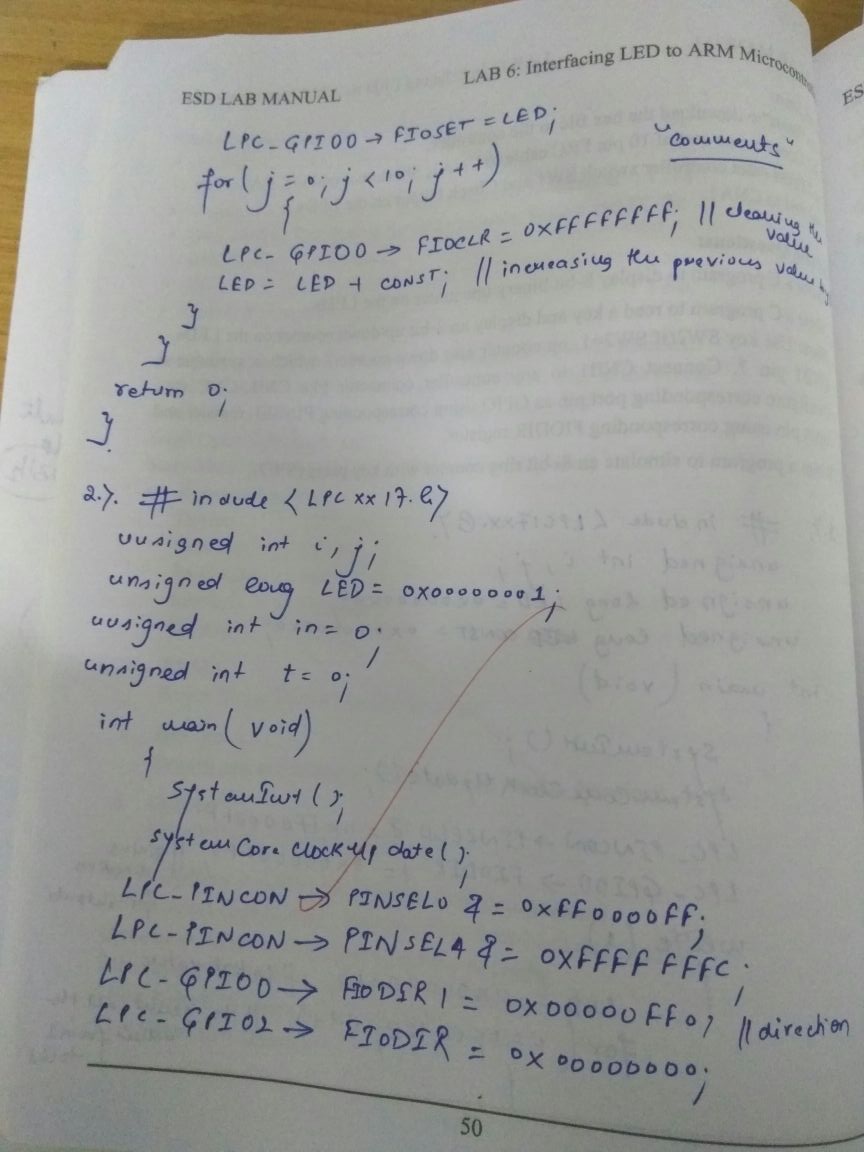 ESD LAB MANUAL LAB 6: Interfacing LED to ARM Microcon
ES
LPC_GPIO0 → FIOSET = LED;
"comments"
for(j=0; j<10; j++)
{
LPC_GPIO0 → FIOCLR = 0XFFFFFFFF; // clearing the value
LED = LED + CONST; // increasing the previous value by
}
}
return 0;
}
2.). # include <LPCxx17.h>
unsigned int i, j;
unsigned long LED = 0x00000001;
unsigned int in = 0;
unsigned int t = 0;
int main(void)
{
SystemInit();
system Core clock Up date();
LPC-PINCON → PINSEL0 &= 0xFF0000FF;
LPC-PINCON → PINSEL4 &= 0XFFFF FFFC;
LPC-GPIO0 → FIODIR |= 0X00000FF0; // direction
LPC-GPIO2 → FIODIR = 0X 00000000;
50